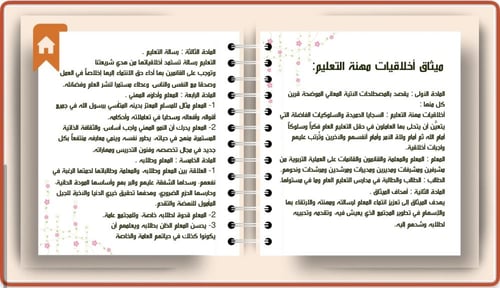 ميثاق أخلاقيات مهنة التعليم:
المادة الأولى : يقصد بالمصطلحات الآتية المعاني الموضحة قرين
كل منها :
أخلاقيات مهنة التعليم : السجايا الحميدة والسلوكيات الفاضلة التي
يتعين أن يتحلى بها العاملون في حقل التعليم العام فكراً وسلوكاً
أمام الله ثم أمام ولاة الأمر وأمام أنفسهم والآخرين وترتب عليهم
واجبات أخلاقية.
المعلم : المعلم والمعلمة والقائمون والقائمات على العملية التربوية من
مشرفين ومشرفات ومديرين ومديرات ومرشدين ومرشدات ونحوهم.
الطالب : الطالب والطالبة في مدارس التعليم العام وما في مستواها.
المادة الثانية : أهداف الميثاق .
يهدف الميثاق إلى تعزيز انتماء المعلم لرسالته ومهنته، والارتقاء بها
والإسهام في تطوير المجتمع الذي يعيش فيه، وتقدمه وتحبيبه
لطلابه وشدهم إليه.
المادة الثالثة : رسالة التعليم .
التعليم رسالة تستمد أخلاقياتها من هدي شريعتنا
وتوجب على القائمين بها أداء حق الانتماء إليها إخلاصاً في العمل
وصدقا مع النفس والناس، وعطاء مستمرا لنشر العلم وفضائله.
المادة الرابعة : المعلم وأداؤه المهني .
1- المعلم مثال للمسلم المعتز بدينه المتأسي برسول الله في جميع
أقواله وأفعاله، وسطيا في تعاملاته وأحكامه.
2- المعلم يدرك أن النمو المهني واجب أساس، والثقافة الذاتية
المستمرة منهج في حياته، يطور نفسه وينمي معارفه منتفعاً بكل
جديد في مجال تخصصه، وفنون التدريس ومهاراته.
المادة الخامسة : المعلم وطلابه .
1- العلاقة بين المعلم وطلابه، والمعلمة وطالباتها لحمتها الرغبة في
نفعهم، وسداها الشفقة عليهم والبر بهم وأساسها المودة الحانية،
وحارسها الحزم الضروري وهدفها تحقيق خيري الدنيا والآخرة للجيل
المأمول للنهضة والتقدم.
2- المعلم قدوة لطلابه خاصة، وللمجتمع عامة.
3- يحسن المعلم الظن بطلابه ويعلمهم أن
يكونوا كذلك في حياتهم العامة والخاصة